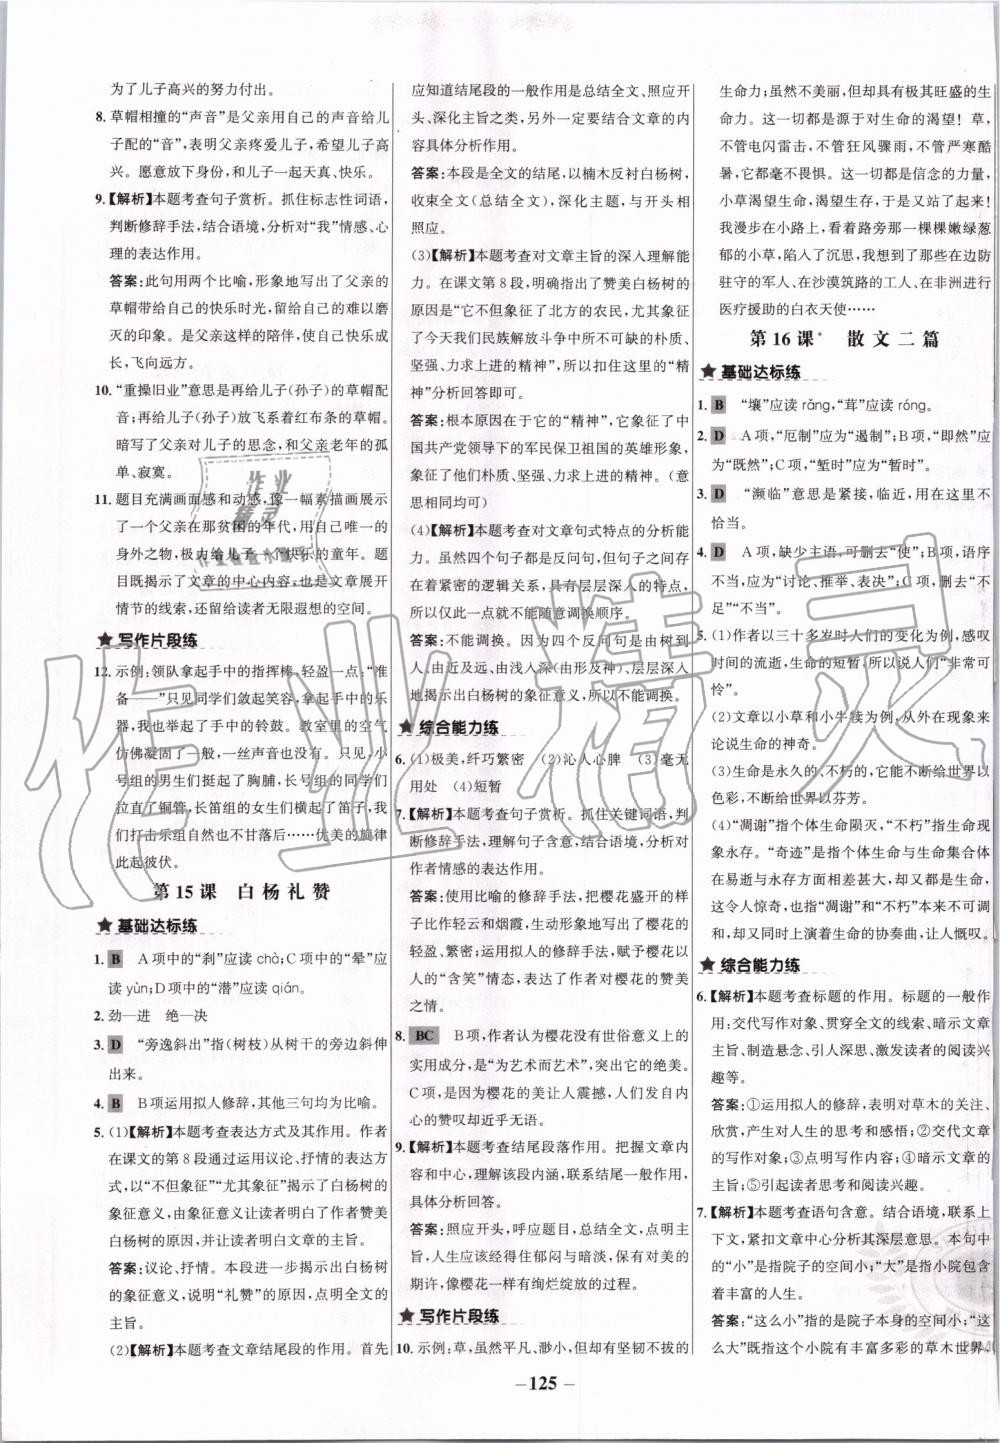 为了儿子高兴的努力付出。
8. 草帽相撞的“声音”是父亲用自己的声音给儿
子配的“音”,表明父亲疼爱儿子,希望儿子高
兴。愿意放下身份,和儿子一起天真、快乐。
9.【解析】本题考查句子赏析。抓住标志性词语,
判断修辞手法,结合语境,分析对“我”情感、心
理的表达作用。
答案:此句用两个比喻,形象地写出了父亲的
草帽带给自己的快乐时光,留给自己的难以磨
灭的印象。是父亲这样的陪伴,使自己快乐成长,
飞向远方。
10. “重操旧业”意思是再给儿子(孙子)的草帽配
音;再给儿子(孙子)放飞系着红布条的草帽。
暗写了父亲对儿子的思念,和父亲老年的孤
单、寂寞。
11. 题目充满画面感和动感,像一幅素描画展示
了一个父亲在那贫困的年代,用自己唯一的
身外之物,极力给儿子一个快乐的童年。题
目揭示了文章的中心内容;也是文章展开
情节的线索,还给读者无限遐想的空间。
★ 写作片段练
12. 示例:领队拿起手中的指挥棒,轻盈一点:“准
备——”只见同学们敛起笑容,拿起手中的乐
器,我也举起了手中的铃鼓。教室里的空气
仿佛凝固了一般,一丝声音也没有。只见,小
号组的男生们挺起了胸脯,长笛组的同学们
拉直了铜管,长笛组的女生们横着了笛子,我
们打击乐组自然也不甘落后……优美的旋律
此起彼伏。
第 15 课 白杨礼赞
★ 基础达标练
1. B A项中的“刹”应读 chà;C项中的“晕”应
读 yùn;D项中的“潜”应读 qián。
2. 劲—进 绝—决
3. D “旁逸斜出”指(树枝)从树干的旁边斜伸
出来。
4. B B项运用拟人修辞,其他三句均为比喻。
5. (1)【解析】本题考查表达方式及其作用。作者
在课文的第8段通过运用议论、抒情的表达方
式,以“不但象征”“尤其象征”揭示了白杨树的
象征意义,由象征意义让读者明白了作者赞美
白杨树,并让读者明白文章的主旨。
答案:议论、抒情。本段进一步揭示了白杨树
的象征意义,说明“礼赞”的原因,点明全文的
主旨。
(2)【解析】本题考查文章结尾段的作用。首先
应知道结尾段的一般作用是总结全文、照应开
头、深化主旨之类,另外一定要结合文章的内
容具体分析作用。
答案:本段是全文的结尾,以楠木反衬白杨树,
收束全文(总结全文),深化主题,与开头相
照应。
(3)【解析】本题考查对文章主旨的深入理解能
力。在课文第8段,明确指出了赞美白杨树的
原因是“它不但象征了北方的农民,尤其象征
了今天我们民族解放斗争中所不可缺的朴质、
坚强、力求上进的精神”,根据“精神”分析回答即可。
答案:根本原因在于它的“精神”,它象征了中
国共产党领导下的军民保卫祖国的英雄形象,
象征了他们朴质、坚强、力求上进的精神。(意
思相同均可)
(4)【解析】本题考查对文章句式特点的分析能
力。虽然四个句子都是反问句,但句子之间存
在着紧密的逻辑关系,具有层层深入的特点,
所以仅此一点就不能随意调换顺序。
答案:不能调换。因为四个反问句是由树到
人,由近及远,由浅入深(由形及神),层层深入
地揭示出白杨树的象征意义,所以不能调换。
★ 综合能力练
6. (1)极美,纤巧繁密 (2)沁人心脾 (3)毫无
用处 (4)短暂
7.【解析】本题考查句子赏析。抓住关键词语,判
断修辞手法,结合句子含意、语境,分析对
作者情感的表达作用。
答案:使用比喻的修辞手法,把樱花盛开的样
子比作轻云和烟霞,生动形象地写出了樱花的
轻盈、繁密;运用拟人的修辞手法,赋予樱花以
人的“含笑”情态,表达了作者对樱花的赞美
之情。
8. BC B项,作者认为樱花没有世俗意义上的
实用成分,是“为艺术而艺术”,突出它的绝美。
C项,是因为樱花的美让人震撼,人们发自
内心的赞叹却近乎无语。
9.【解析】本题考查结尾段落作用。把握文章
内容和中心,理解该段内涵,联系结尾一般作用,
具体分析回答。
答案:照应开头,呼应题目,总结全文,点明主
旨,人生应该经得住郁闷与暗淡,保有对美的
期许,像樱花一样有绚烂绽放的过程。
★ 写作片段练
10. 示例:草,虽然平凡、渺小,但却有坚韧不拔的
生命力;虽然不美丽,但却有极其旺盛的生
命力。这一切都是源于对生命的渴望!草,
不管电闪雷击,不管狂风骤雨,不管严寒酷
暑,它都毫不畏惧。这一切都是信念的力量,
小草渴望生命,渴望生存,于是又站了起来!
我走在小路上,看着路旁那一棵棵嫩绿葱
郁的小草,陷入了沉思,我想到了那些在边防
驻守的军人、在沙漠筑路的工人、在非洲进行
医疗援助的白衣天使……
第 16 课* 散文二篇
★ 基础达标练
1. B “壤”应读 rǎng,“茸”应读 róng。
2. D A项,“厄制”应为“遏制”;B项,“即然”应
为“既然”;C项,“堑时”应为“暂时”。
3. D “濒临”意思是紧接,临近,用在这里不
恰当。
4. D A项,缺少主语,可删去“使”;B项,语序
不当,应为“讨论、推举、表决”;C项,删去“不
足”“不当”。
5. (1)作者以三十多岁时人们的变化为例,感叹
时间的流逝,生命的短暂,所以说人们“非常可
怜”。
(2)文章以小草和小牛犊为例,从外在现象来
论说生命的神奇。
(3)生命是永久的、不朽的,它能不断给世界以
色彩,不断给世界以芬芳。
(4)“凋谢”指个体生命陨灭,“不朽”指生命现
象永存。“奇迹”是指个体生命与生命集合体
在易逝与永存方面呈现的截然不同的特点,
这令人惊奇,也“凋谢”和“不朽”本来不可调
和,却又同时上演着生命的协奏曲,让人慨叹。
★ 综合能力练
6.【解析】本题考查标题的作用。标题的一般作
用:交代写作对象、贯穿全文的线索、暗示文章
主旨、制造悬念、引人深思、激发读者的阅读兴
趣等。
答案:①运用拟人的修辞,表明对草木的关注、
欣赏,产生对人生的思考和感悟;②交代文章
的写作对象;③点明写作内容;④暗示文章的
主旨;⑤引起读者思考和阅读兴趣。
7.【解析】本题考查语句含意。结合语境,联系上
下文,紧扣文章中心分析其深层意思。本句中
的“小”是指院子的空间小;“大”是指小院包含
着丰富的人生。
答案:“这么小”指的是院子本身的空间小;“这
么大”既指这个小院有丰富多彩的草木世界,
– 125 –
作业精灵
作业
精灵